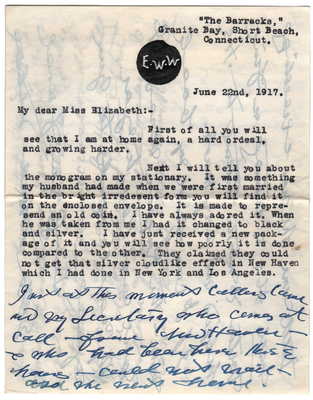 "The Barracks,"
Granite Bay, Short Beach,
Connecticut.
E.W.W
June 22nd, 1917.
My dear Miss Elizabeth:-
First of all you will
see that I am at home again, a hard ordeal,
and growing harder.
Next I will tell you about
the monogram on my stationary. It was something
my husband had made when we were first married
in the bright irredesent form you will find it
on the enclosed envelope. It is made to repre-
send an old coin. I have always adored it. When
he was taken from me I had it changed to black
and silver. I have just received a new pack-
age of it and you will see how poorly it is done
compared to the other. They claimed they could
not get that silver cloudlike effect in New Haven
which I had done in New York and Los Angeles.
Just at this moment callers came
and my Secretary who comes at
call - from New Haven -
& who had been here three
hours - could not wait -
and the next